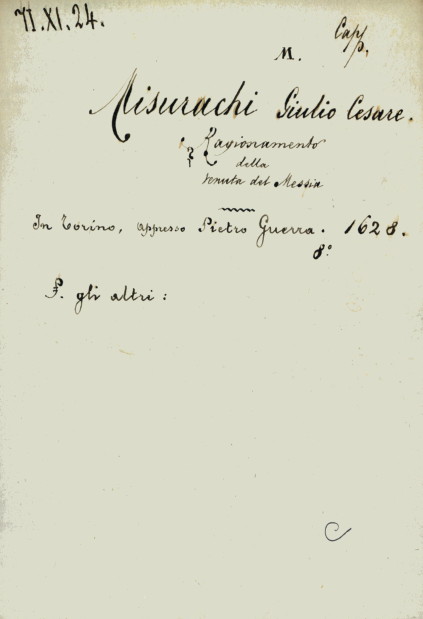 71.XI.24.
Capp.
M.
Misurachi Giulio Cesare.
Ragionamento
della
venuta del Messia
In Torino, appresso Pietro Guerra. 1628.
8°
gli altri :
C